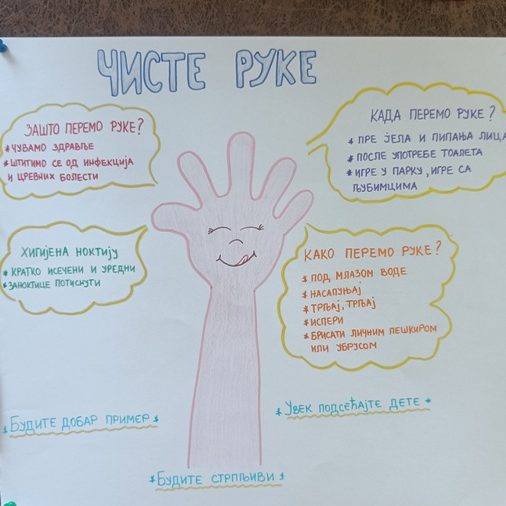 ЧИСТЕ РУКЕ
ЗАШТО ПЕРЕМО РУКЕ?
* ЧУВАМО ЗДРАВЉЕ
* ШТИТИМО СЕ ОД ИНФЕКЦИЈА
И ЦРЕВНИХ БОЛЕСТИ
КАДА ПЕРЕМО РУКЕ?
* ПРЕ ЈЕЛА И ПИПАЊА ЛИЦА
* ПОСЛЕ УПОТРЕБЕ ТОАЛЕТА
* ИГРЕ У ПАРКУ, ИГРЕ СА
ЉУБИМЦИМА
ХИГИЈЕНА НОКТИЈУ
* КРАТКО ИСЕЧЕНИ И УРЕДНИ
* ЗАНОКТИЦЕ ПОТИСНУТИ
КАКО ПЕРЕМО РУКЕ?
* ПОД МЛАЗОМ ВОДЕ
* НАСАПУЊАЈ
* ТРЉАЈ, ТРЉАЈ
* ИСПЕРИ
* БРИСАТИ ЛИЧНИМ ПЕШКИРОМ
ИЛИ УБРУСОМ
* БУДИТЕ ДОБАР ПРИМЕР *
* УВЕК ПОДСЕЋАЈТЕ ДЕТЕ *
* БУДИТЕ СТРПЉИВИ *